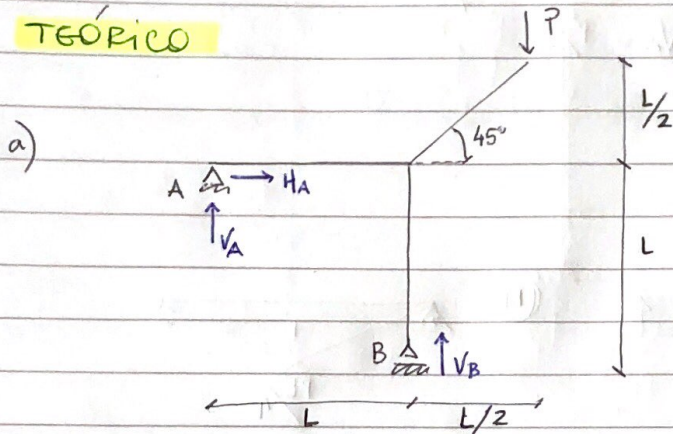 TEÓRICO
P
L/2
45°
a)
A HA
VA
L
B VB
L L/2